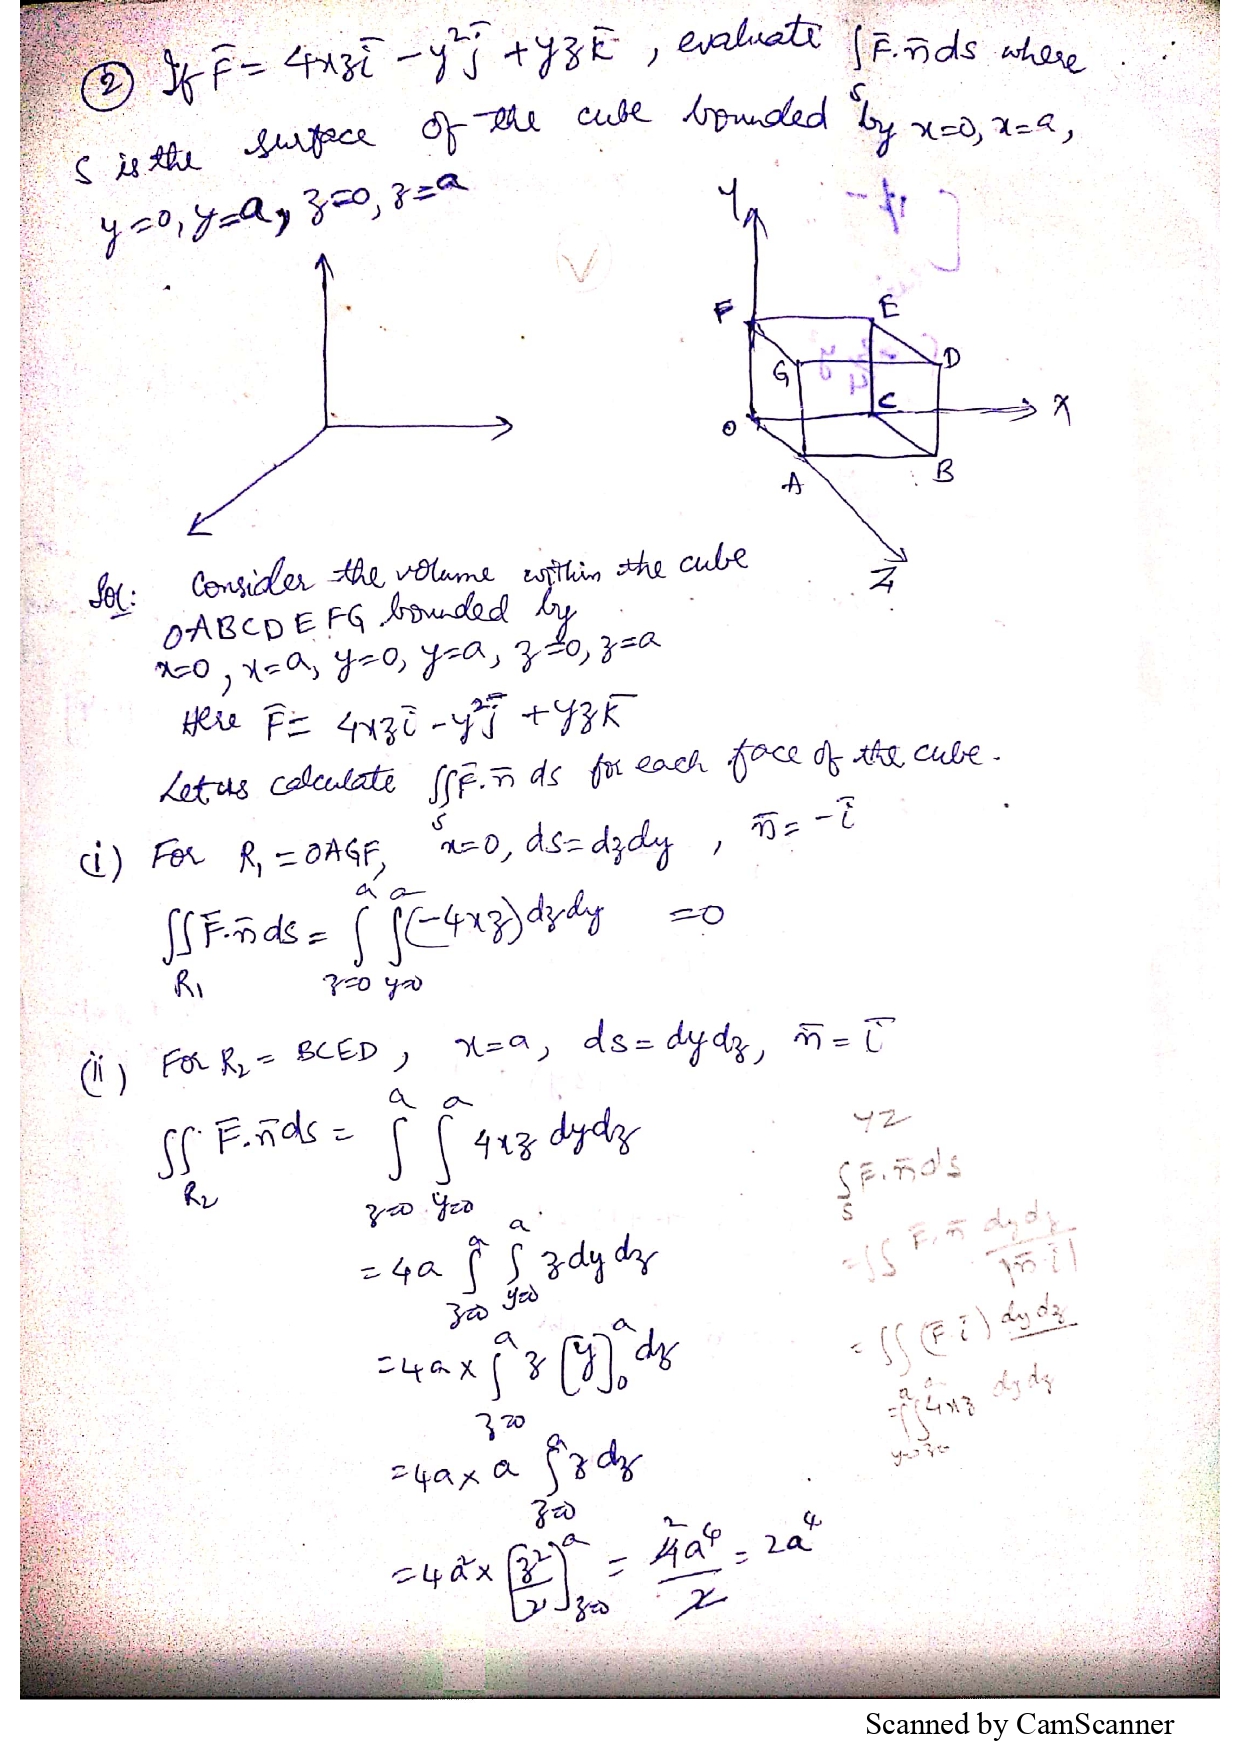 ② If F̄ = 4xzī - y²j̄ + yzk̄, evaluate ∫_S F̄.n̄ ds where
S is the surface of the cube bounded by x=0, x=a,
y=0, y=a, z=0, z=a
Y
F
E
G
D
O
C
X
A
B
Z
Sol: Consider the volume within the cube
OABCDEFG bounded by
x=0, x=a, y=0, y=a, z=0, z=a
Here F̄ = 4xzī - y²j̄ + yzk̄
Let us calculate ∬_S F̄.n̄ ds for each face of the cube.
(i) For R₁ = OAGF, x=0, ds=dzdy, n̄ = -ī
∬_{R₁} F̄.n̄ ds = ∫_{z=0}^{a} ∫_{y=0}^{a} (-4xz) dzdy = 0
(ii) For R₂ = BCED, x=a, ds=dydz, n̄ = ī
∬_{R₂} F̄.n̄ ds = ∫_{z=0}^{a} ∫_{y=0}^{a} 4xz dydz
= 4a ∫_{z=0}^{a} ∫_{y=0}^{a} z dy dz
= 4a × ∫_{z=0}^{a} z [y]_0^a dz
= 4a × a ∫_{z=0}^{a} z dz
= 4a² × [z²/2]_{z=0}^{a} = 4a⁴/2 = 2a⁴
YZ
∫_S F̄.n̄ ds
= ∬ F̄.n̄ dydz/|n̄.ī|
= ∬ (F̄.ī) dydz
= ∫∫ 4xz dydz
Scanned by CamScanner